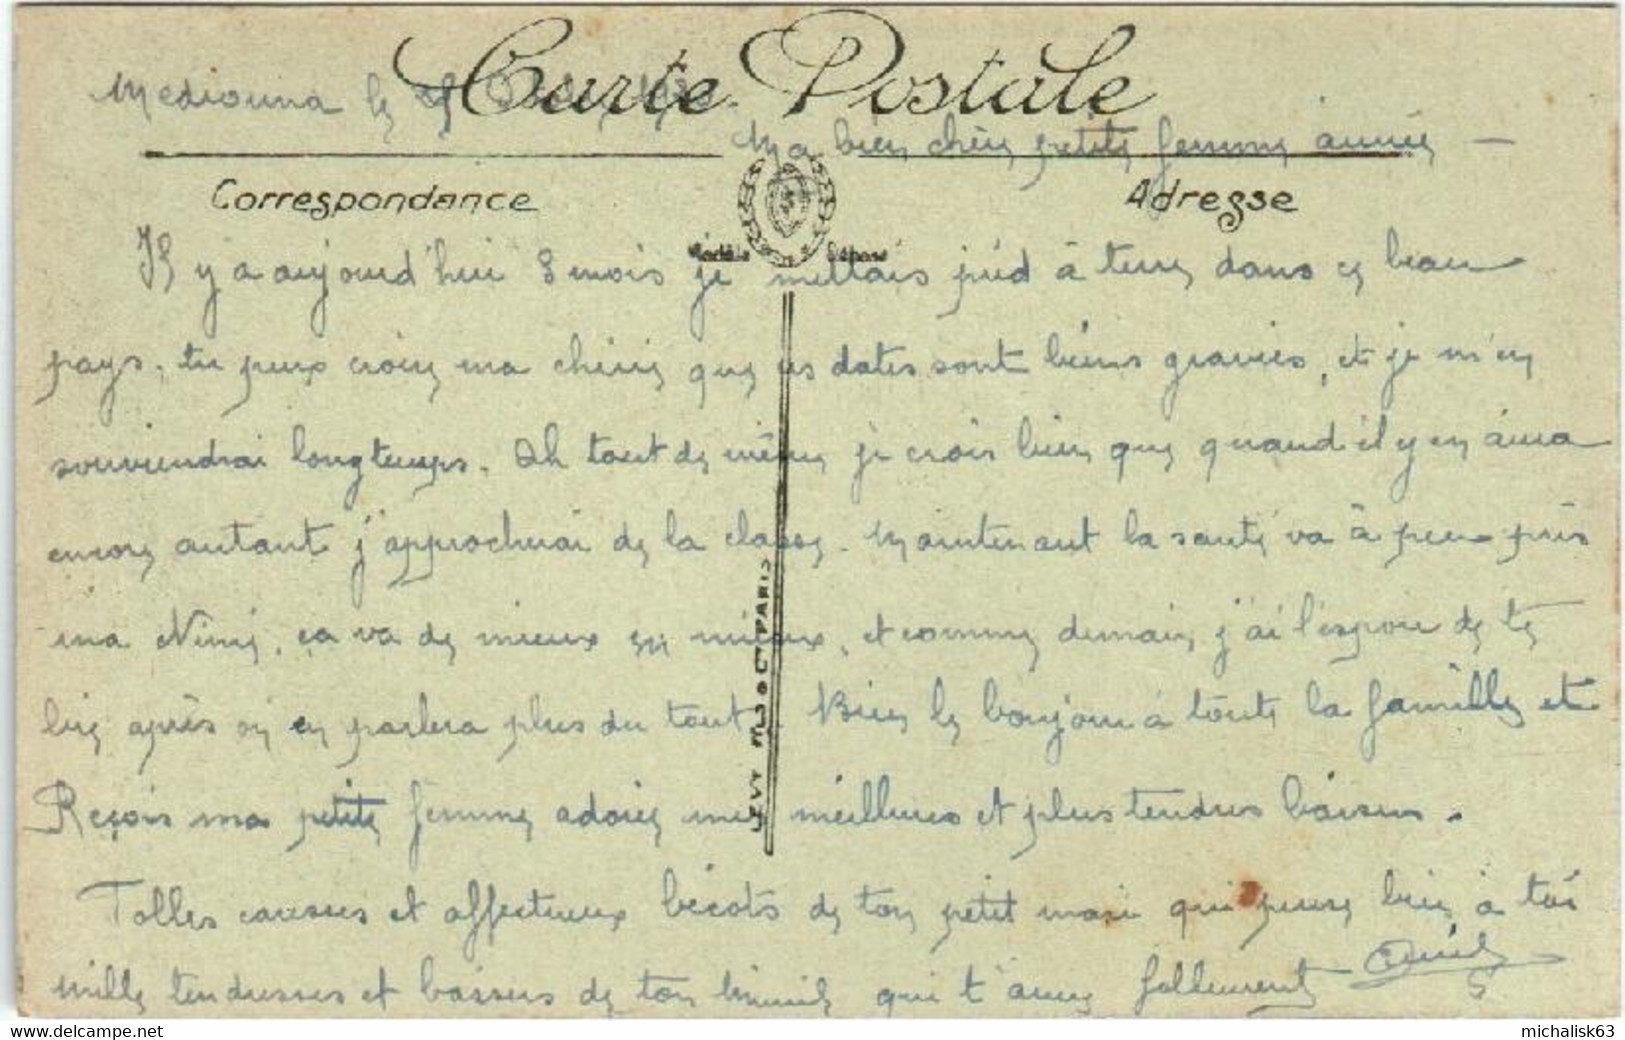 Carte Postale
Mediouna le
Ma bien chère petite femme aimée —
Correspondance
Adresse
Il y a aujourd'hui 8 mois je mettais pied à terre dans ce beau
pays, tu peux croire ma chérie que ces dates sont biens gravées, et je m'en
souviendrai longtemps. Oh tout de même je crois bien que quand il y en aura
encore autant j'approcherai de la classe. Maintenant la santé va à peu près
ma Nini, ça va de mieux en mieux, et comme demain j'ai l'espoir de te
lire après on en parlera plus du tout. Bien le bonjour à toute la famille et
Reçois ma petite femme adorée mes meilleures et plus tendres baisers.
Folles caresses et affectueux bécots de ton petit mari qui pense bien à toi
mille tendresses et baisers de ton Emile qui t'aime follement Emile
LEVY FILS & Cie PARIS
www.delcampe.net
michalisk63